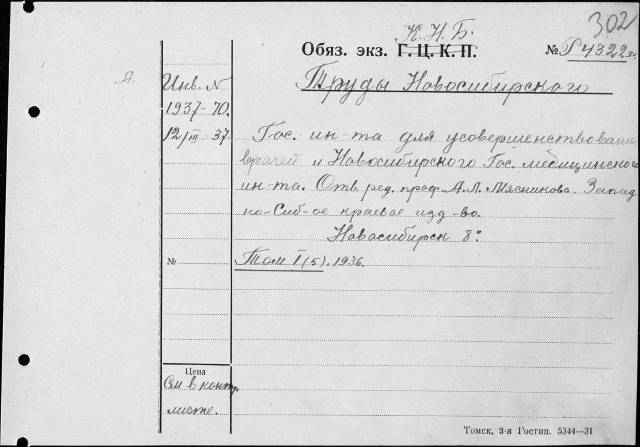 302
К. Н. Б.
Обяз. экз. Г. Ц. К. П. № Р4322
Инв. N
1937-70.
12/III-37.
Труды Новосибирского
Гос. ин-та для усовершенствован.
врачей и Новосибирского Гос. медицинского
ин-та. Отв. ред. проф. А. Л. Мясников. Запад
но-Сиб-ое краевое изд-во.
Новосибирск 8°.
№ Том I (5). 1936.
Цена
См в контр.
листе.
Томск, 3-я Гостип. 5344—31